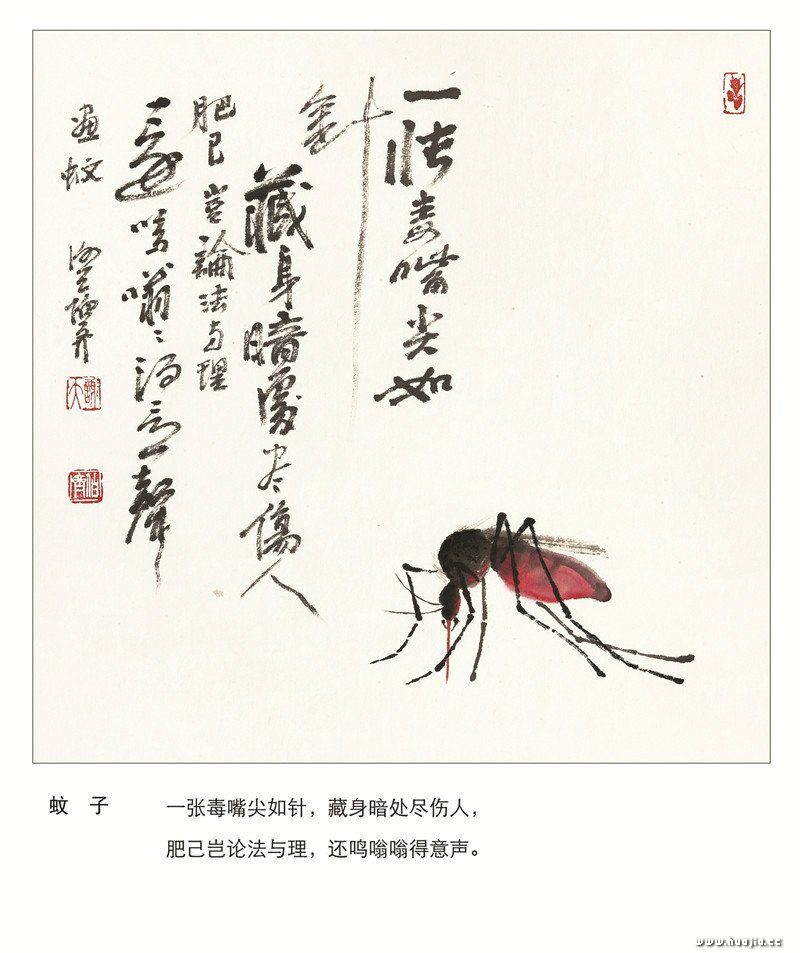 一张毒嘴尖如
針
藏身暗處尽傷人
肥己豈論法与理
還鸣嗡〻得意聲
畫蚊
蚊 子
一张毒嘴尖如针，藏身暗处尽伤人，
肥己岂论法与理，还鸣嗡嗡得意声。
www.huajia.cc